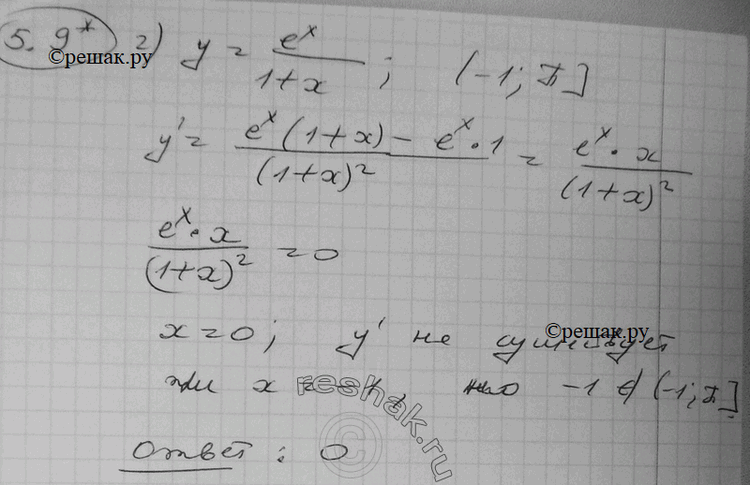 5.9* г) y = e^x / (1+x) ; (-1; π]
©решак.ру
y' = (e^x (1+x) - e^x · 1) / (1+x)^2 = (e^x · x) / (1+x)^2
(e^x · x) / (1+x)^2 = 0
x = 0; y' не существует
©решак.ру
при x = -1, но -1 ∉ (-1; π]
reshak.ru
Ответ: 0